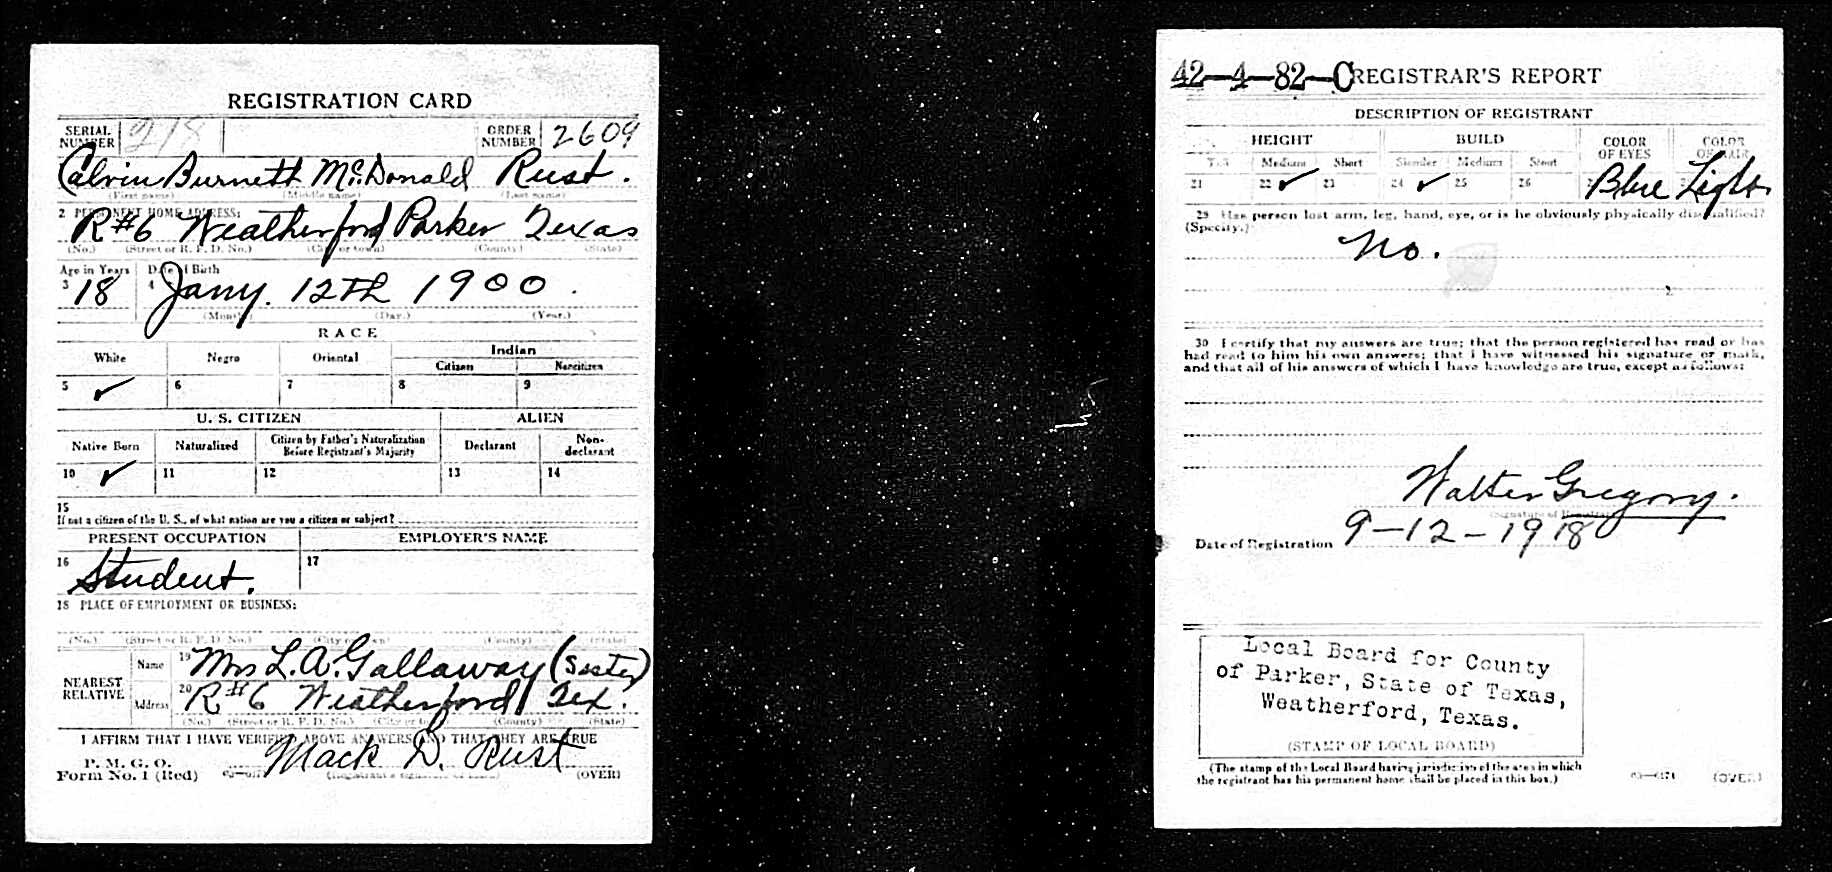 REGISTRATION CARD
SERIAL NUMBER 218 ORDER NUMBER 2609
Calvin Burnett McDonald Rust.
(First name) (Middle name) (Last name)
2 PERMANENT HOME ADDRESS:
R#6 Weatherford Parker Texas
(No.) (Street or R. F. D. No.) (City or town) (County) (State)
Age in Years Date of Birth
3 18 4 Jany. 12th 1900.
(Month.) (Day.) (Year.)
RACE
White Negro Oriental Indian
Citizen Noncitizen
5 ✓ 6 7 8 9
U. S. CITIZEN ALIEN
Native Born Naturalized Citizen by Father's Naturalization Before Registrant's Majority Declarant Non-declarant
10 ✓ 11 12 13 14
15
If not a citizen of the U. S., of what nation are you a citizen or subject?
PRESENT OCCUPATION EMPLOYER'S NAME
16 Student. 17
18 PLACE OF EMPLOYMENT OR BUSINESS:
(No.) (Street or R. F. D. No.) (City or town) (County) (State)
NEAREST RELATIVE Name 19 Mrs L. A. Gallaway (Sister)
Address 20 R#6 Weatherford Tex.
(No.) (Street or R. F. D. No.) (City or town) (County) (State)
I AFFIRM THAT I HAVE VERIFIED ABOVE ANSWERS AND THAT THEY ARE TRUE
P. M. G. O.
Form No. 1 (Red) Mack D. Rust (OVER)
42-4-82-C REGISTRAR'S REPORT
DESCRIPTION OF REGISTRANT
HEIGHT BUILD COLOR OF EYES COLOR OF HAIR
Tall Medium Short Slender Medium Stout
21 22 ✓ 23 24 ✓ 25 26 Blue Light
29 Has person lost arm, leg, hand, eye, or is he obviously physically disqualified?
(Specify.)
No.
30 I certify that my answers are true; that the person registered has read or has
had read to him his own answers; that I have witnessed his signature or mark,
and that all of his answers of which I have knowledge are true, except as follows:
Walter Gregory.
(Signature of Registrar)
Date of Registration 9-12-1918
Local Board for County
of Parker, State of Texas,
Weatherford, Texas.
(STAMP OF LOCAL BOARD)
(The stamp of the Local Board having jurisdiction of the area in which
the registrant has his permanent home shall be placed in this box.)
03-6171 (OVER)